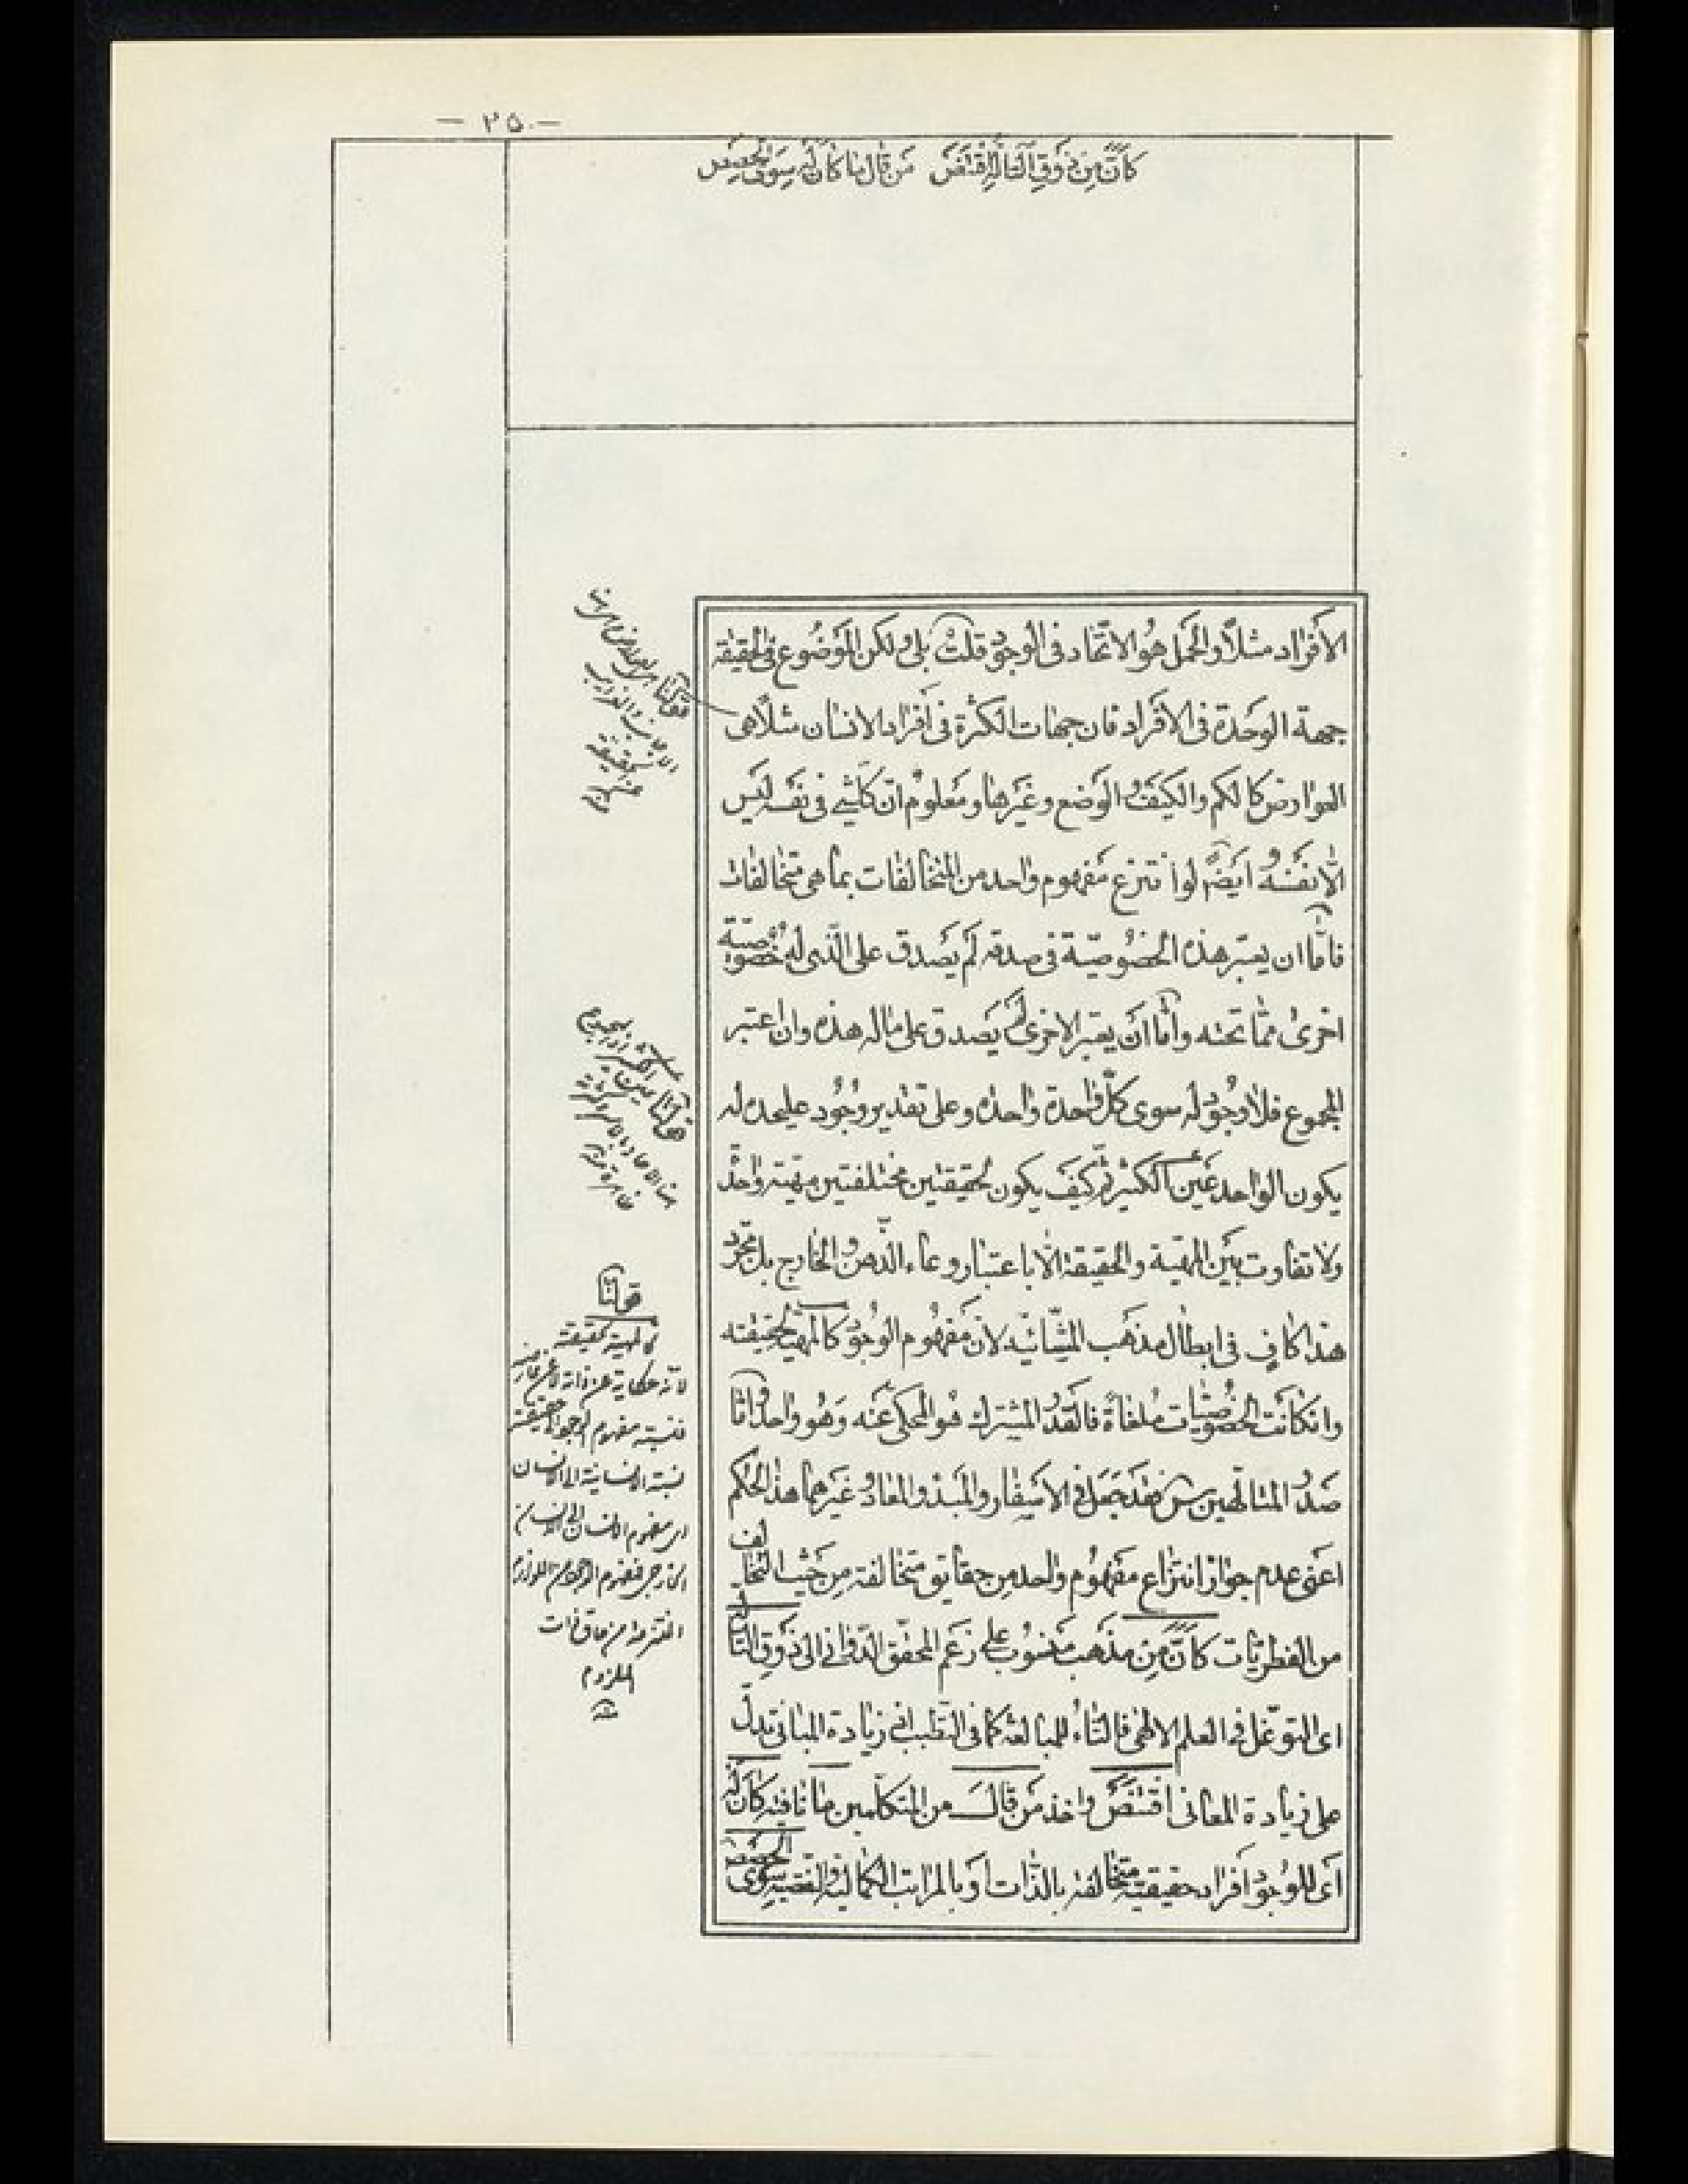 — ۲۵ —
كأنّ من ذوق التأله اقتنص من قال ما كان له سوى الحصص
الأفراد مثلاً والحمل هو الاتّحاد فى الوجود قلت بلى ولكن الموضوع فى الحقيقه
جهة الوحدة فى الافراد فان جهات الكثرة فى افراد الانسان مثلاً هى
العوارض كالكم والكيف والوضع وغيرها ومعلوم ان كل شىء فى نفسه ليس
الّا نفسه ايضاً لو انتزع مفهوم واحد من المتخالفات بما هى متخالفات
فامّا ان يعتبر هذه الخصوصيّة فى صدقه لم يصدق على الّذى له خصوصيّة
اخرى ممّا تحته وامّا ان يعتبر الاخرى لم يصدق على ما له هذه وان اعتبر
المجموع فلا وجود له سوى كلّ واحدة واحدة وعلى تقدير وجود عليحده له
يكون الواحد عين الكثير ثمّ كيف يكون لحقيقتين مختلفتين مهيّة واحدة
ولا تفاوت بين المهيّة والحقيقة الّا باعتبار وعاء الذّهن والخارج بل مجرّد
هذا كاف فى ابطال مذهب المشّائيّه لانّ مفهوم الوجود كالمهيّة لحقيقته
وان كانت الخصوصيّات ملغاة فالقدر المشترك هو المحكى عنه وهو واحد وامّا
صدر المتالّهين س فقد جعل فى الاسفار والمبدء والمعاد وغيرهما هذا الحكم
اعنى عدم جواز انتزاع مفهوم واحد من حقايق متخالفة من حيث التخالف
من الفطريّات كأنّ من مذهب منسوب على زعم المحقّق الدّوانى الى ذوق التألّه
اى التوغّل فى العلم الالهى فالتّاء للمبالغة كما فى التطبب اذ زيادة المبانى تدلّ
على زيادة المعانى اقتنص واخذ من قال من المتكلّمين ما نافية كان له
اى للوجود افراد حقيقيّة متخالفة بالذّات او بالمراتب الكماليّة والنّقصيّة سوى الحصص
قولنا
كالمهية لحقيقته
لانّه حكاية عن ذاته لا عن عارضه
فنسبة مفهوم الوجود الى حقيقته
نسبة الانسانية الى الانسان
اى مفهوم الانسان الى الانسان
الخارجى فمفهوم الوجود من اللوازم
المنتزعة من حاق ذات
الملزوم
منه